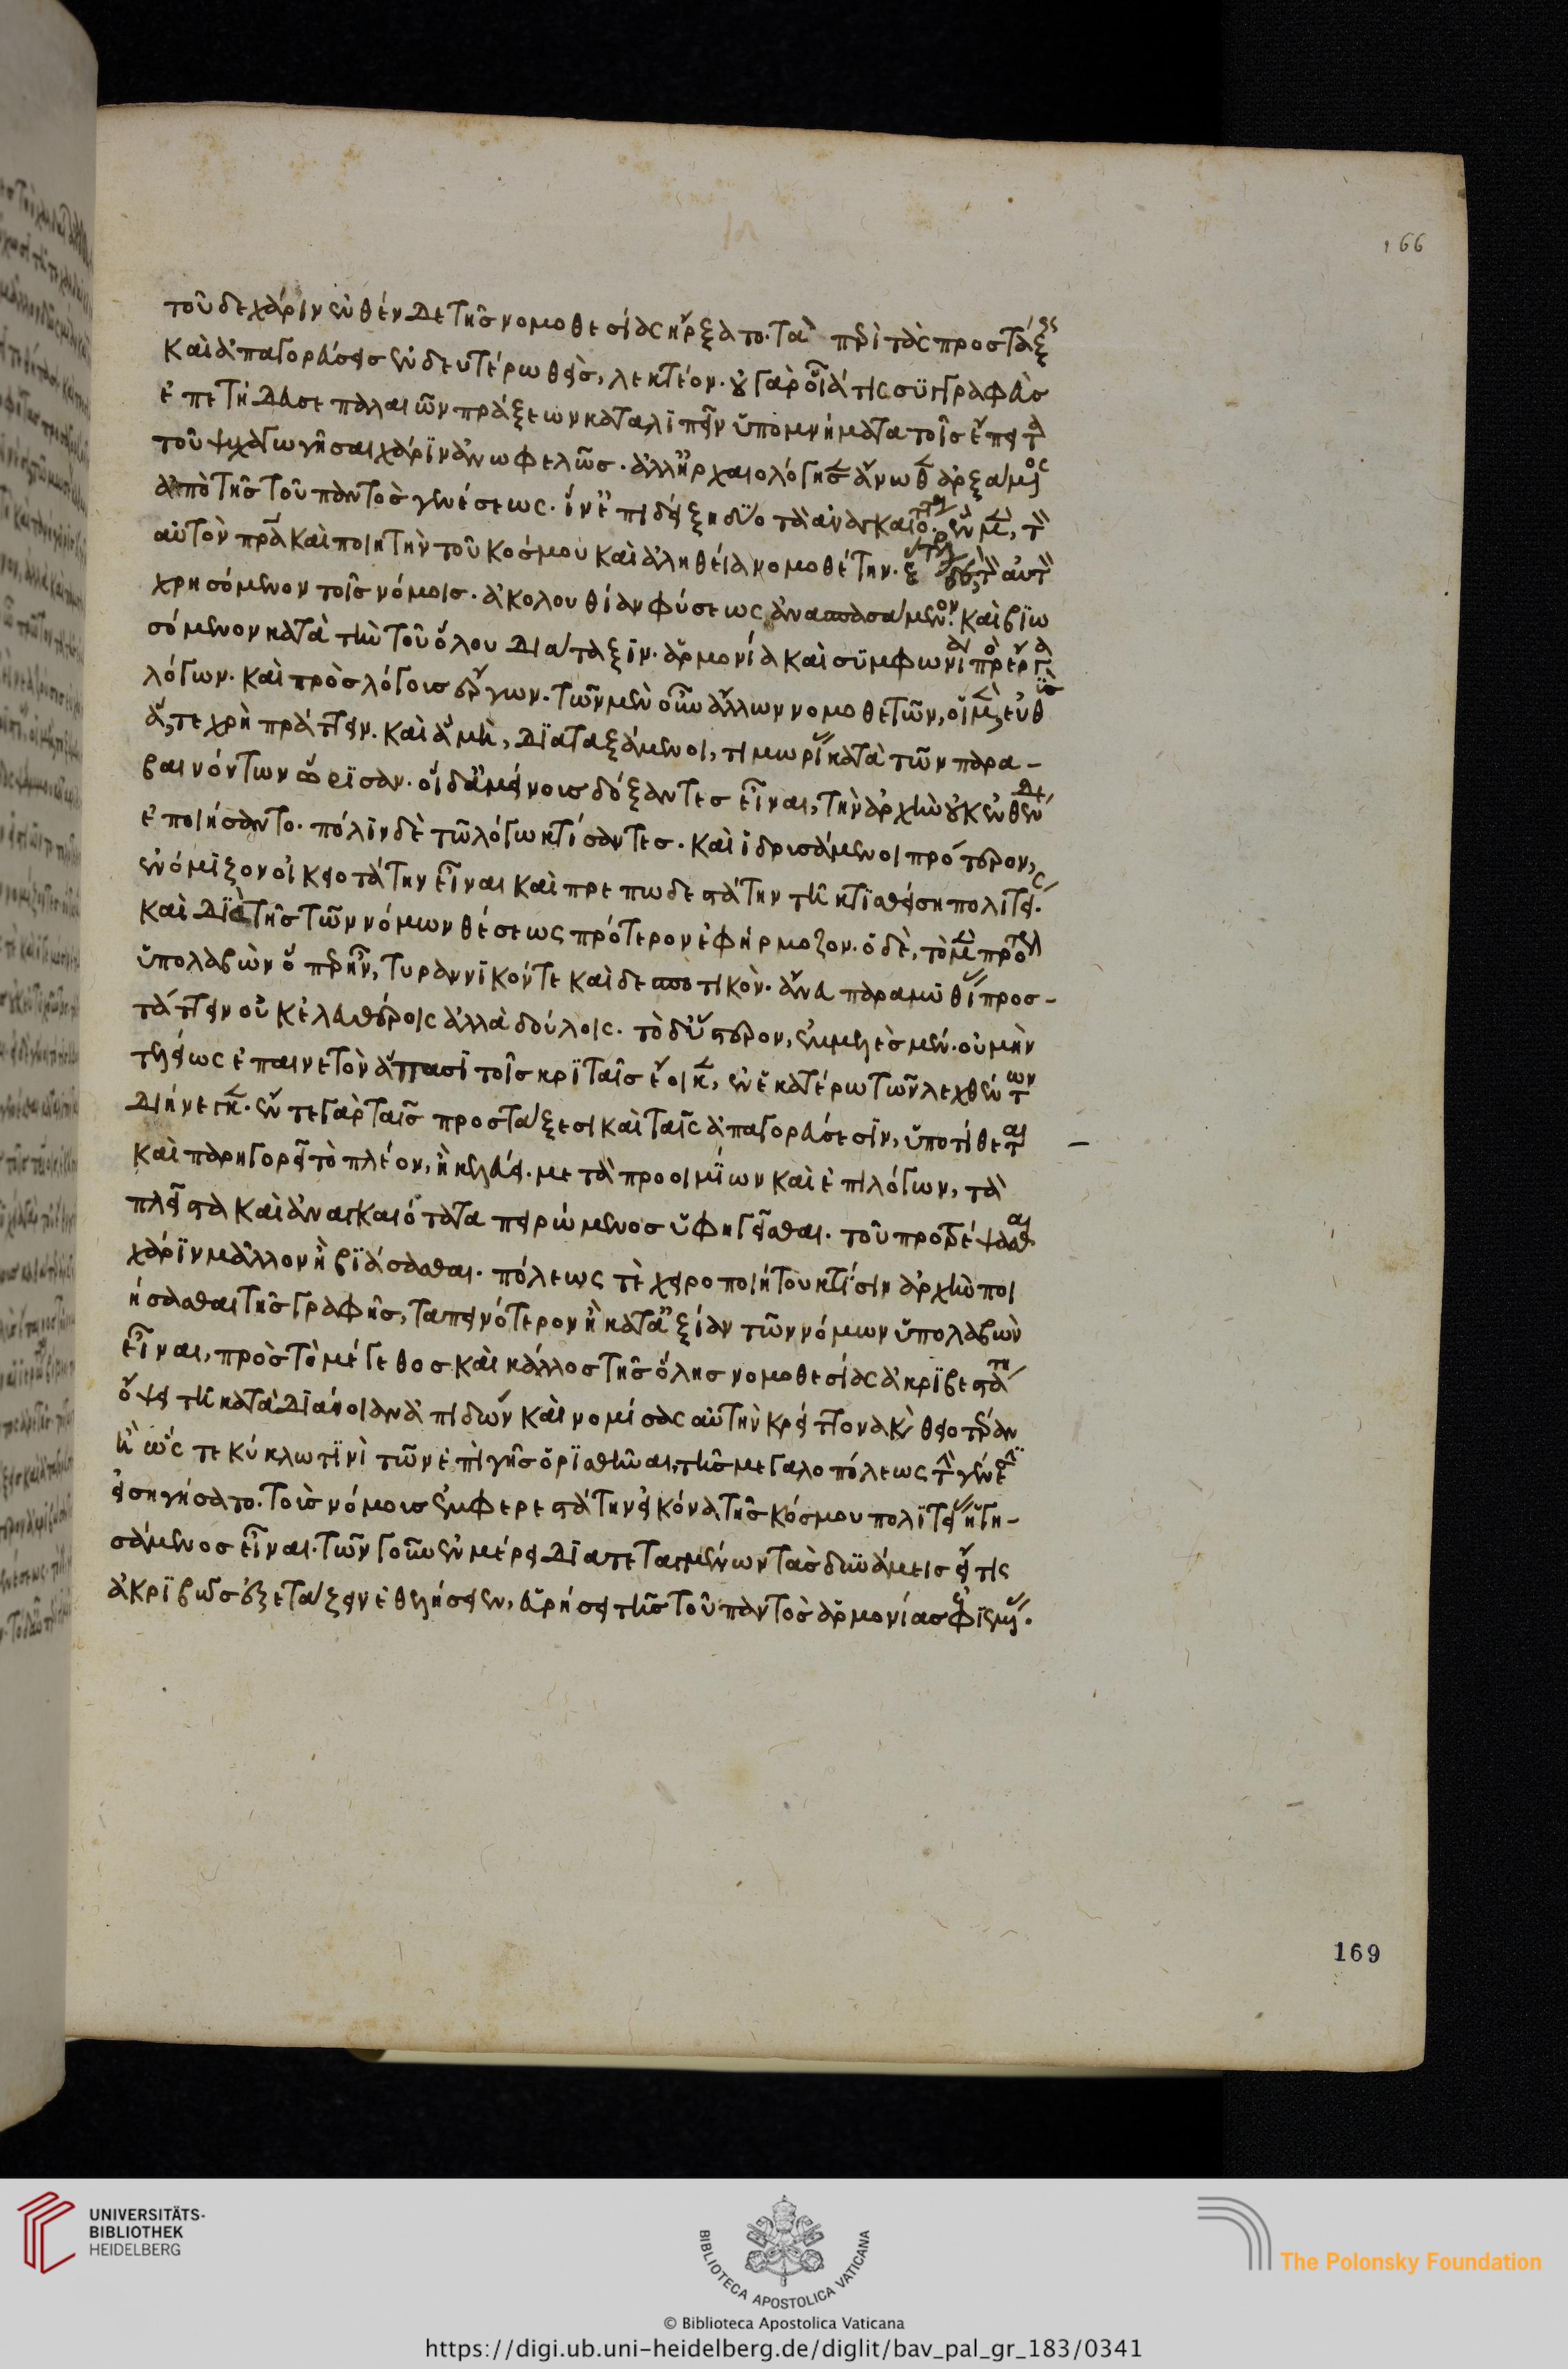 τοῦ δε χάριν ἐνθένδε τῆς νομοθεσίας ἤρξατο. τὰ περὶ τὰς προστάξεις
καὶ ἀπαγορεύσεις ἐν δευτέρω θεὶς, λεκτέον. οὐ γὰρ οἷά τις συγγραφεὺς
ἐπετήδευσε παλαιῶν πράξεων καταλιπεῖν ὑπομνήματα τοῖς ἔπειτα
τοῦ ψυχαγωγῆσαι χάριν ἀνωφελῶς. ἀλλ' ἠρχαιολόγησεν ἄνωθεν ἀρξάμενος
ἀπὸ τῆς τοῦ παντὸς γενέσεως. ἵν' ἐπιδείξη δύο τὰ ἀναγκαιότατα. ἓν μὲν, τὸν
αὐτὸν πατέρα καὶ ποιητὴν τοῦ κόσμου καὶ ἀληθεία νομοθέτην. αὐτὸν
χρησόμενον τοῖς νόμοις. ἀκολουθίαν φύσεως καὶ βιω
σόμενον κατὰ τὴν τοῦ ὅλου διάταξιν. ἁρμονία καὶ συμφωνία πρὸς ἔργα
λόγων. καὶ πρὸς λόγοις ἔργων. τῶν μὲν οὖν ἄλλων νομοθετῶν, οἱ μὲν εὐθὺς
ἅ, τε χρὴ πράττειν. καὶ ἃ μὴ, διαταξάμενοι, τιμωρίας κατὰ τῶν παρα-
βαινόντων ὥρισαν. οἱ δ' ἀμείνοις δόξαντες εἶναι, τὴν ἀρχὴν οὐκ ἐνθένδε
ἐποιήσαντο. πόλιν δὲ τῶ λόγω κτίσαντες. καὶ ἱδρισάμενοι πρότερον,
ἐνόμιζον οἰκειοτάτην εἶναι καὶ πρεπωδεστάτην τῆ κτισθείση πολιτείας.
καὶ διὰ τῆς τῶν νόμων θέσεως πρότερον ἐφήρμοζον. ὁ δὲ, τὸ μὲν πρότερον
ὑπολαβὼν ὅπερ ἦν, τυραννικόν τε καὶ δεσποτικὸν. ἄνευ παραμυθίας προσ-
τάττειν οὐκ ἐλευθέροις ἀλλὰ δούλοις. τὸ δ' ὕστερον, ἐμμελὲς μὲν. οὐ μὴν
τελείως ἐπαινετὸν ἅπασι τοῖς κριταῖς ἔοικεν, ἐν ἑκατέρω τῶν λεχθέντων
διήνεγκεν. ἔν τε γὰρ ταῖς προστάξεσι καὶ ταῖς ἀπαγορεύσεσιν, ὑποτίθεται
καὶ παρηγορεῖ τὸ πλέον, ἢ κελεύει. μετὰ προοιμίων καὶ ἐπιλόγων, τὰ
πλεῖστα καὶ ἀναγκαιότατα πειρώμενος ὑφηγεῖσθαι. τοῦ προτρέψασθαι
χάριν μᾶλλον ἢ βιάσασθαι. πόλεως τὲ χειροποιήτου κτίσιν ἀρχὴν ποι
ήσασθαι τῆς γραφῆς, ταπεινότερον ἢ κατ' ἀξίαν τῶν νόμων ὑπολαβὼν
εἶναι, πρὸς τὸ μέγεθος καὶ κάλλος τῆς ὅλης νομοθεσίας ἀκριβεστάτη
ὄψει τῆ κατὰ διάνοιαν ἀπιδὼν καὶ νομίσας αὐτὴν κρείττονα καὶ θειοτέραν
ἢ ὥς τε κύκλω τινὶ τῶν ἐπὶ γῆς ὁρισθῆναι, τῆς μεγαλοπόλεως τὴν γένεσιν
εἰσηγήσατο. τοὶς νόμοις ἐμφερεστάτην εἰκόνα τῆς κόσμου πολιτείας ἡγη-
σάμενος εἶναι. τῶν γοῦν ἐν μέρει διατεταγμένων τὰς δυνάμεις εἴ τις
ἀκριβῶς ἐξετάζειν ἐθελήσειεν, εὑρήσει τῆς τοῦ παντὸς ἁρμονίας ἐφιεμένας.
166
169
UNIVERSITÄTS-
BIBLIOTHEK
HEIDELBERG
BIBLIOTECA APOSTOLICA VATICANA
The Polonsky Foundation
© Biblioteca Apostolica Vaticana
https://digi.ub.uni-heidelberg.de/diglit/bav_pal_gr_183/0341